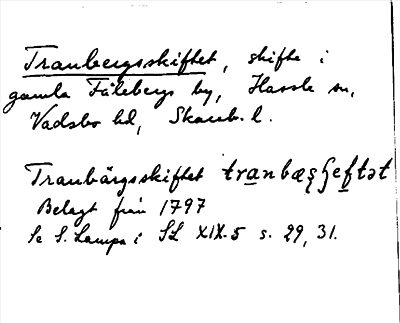 Tranbergsskiftet, skifte i
gamla Fåleberg by, Hassle sn,
Vadsbo hd, Skarab. l.
Tranbärgsskiftet tranbæʂʃeftət
Belagt från 1797
Se S. Lampa i SL XIX.5 s. 29, 31.